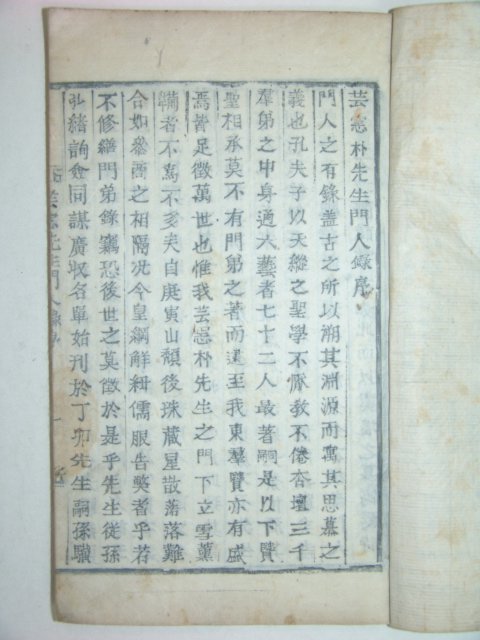 芸窓朴先生門人錄序
門人之有錄盖古之所以溯其淵源而寓其思慕之
義也孔夫子以天縱之聖學不厭敎不倦杏壇三千
羣弟之中身通六藝者七十二人最著嗣是以下賢
聖相承莫不有門弟之著而逮至我東羣賢亦有盛
焉皆足徵萬世也惟我芸窓朴先生之門下立雪薰
鞴者不爲不多矣自庚寅山頹後珠藏星散落落難
合如悉之相隔况今皇綱解紐儒服告獘者乎若
不修繕門弟錄竊恐後世之莫徵於是乎先生從孫
弘緖詢僉同謀廣収名單始刊於丁卯先生嗣孫驥
芸窓先生門人錄序
一